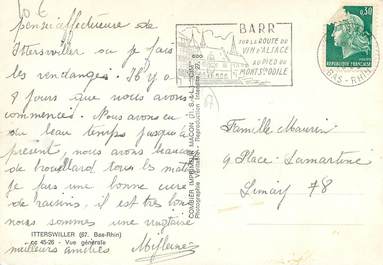 pensée affectueuse de
Itterswiller où je fais
les vendanges. Il y a
8 jours que nous avons
commencés. Nous avons eu
du beau temps jusqu'à
présent, nous avons beaucoup
de brouillard tous les mat
je fais une bonne cure
de raisins, il est très bon
nous sommes une vingtaine
meilleurs amitiés
ITTERSWILLER (67. Bas-Rhin)
cc 45-26 - Vue générale
COMBIER IMPRIMEUR MACON (71. S.-&-L.)
Photographie Véritable - Reproduction Interdite
BARR
SUR LA ROUTE DU
VIN d'ALSACE
AU PIED DU
MONT Ste ODILE
0,30
REPUBLIQUE FRANCAISE
BAS-RHIN
Famille Maurin
9 Place Lamartine
Limay 78